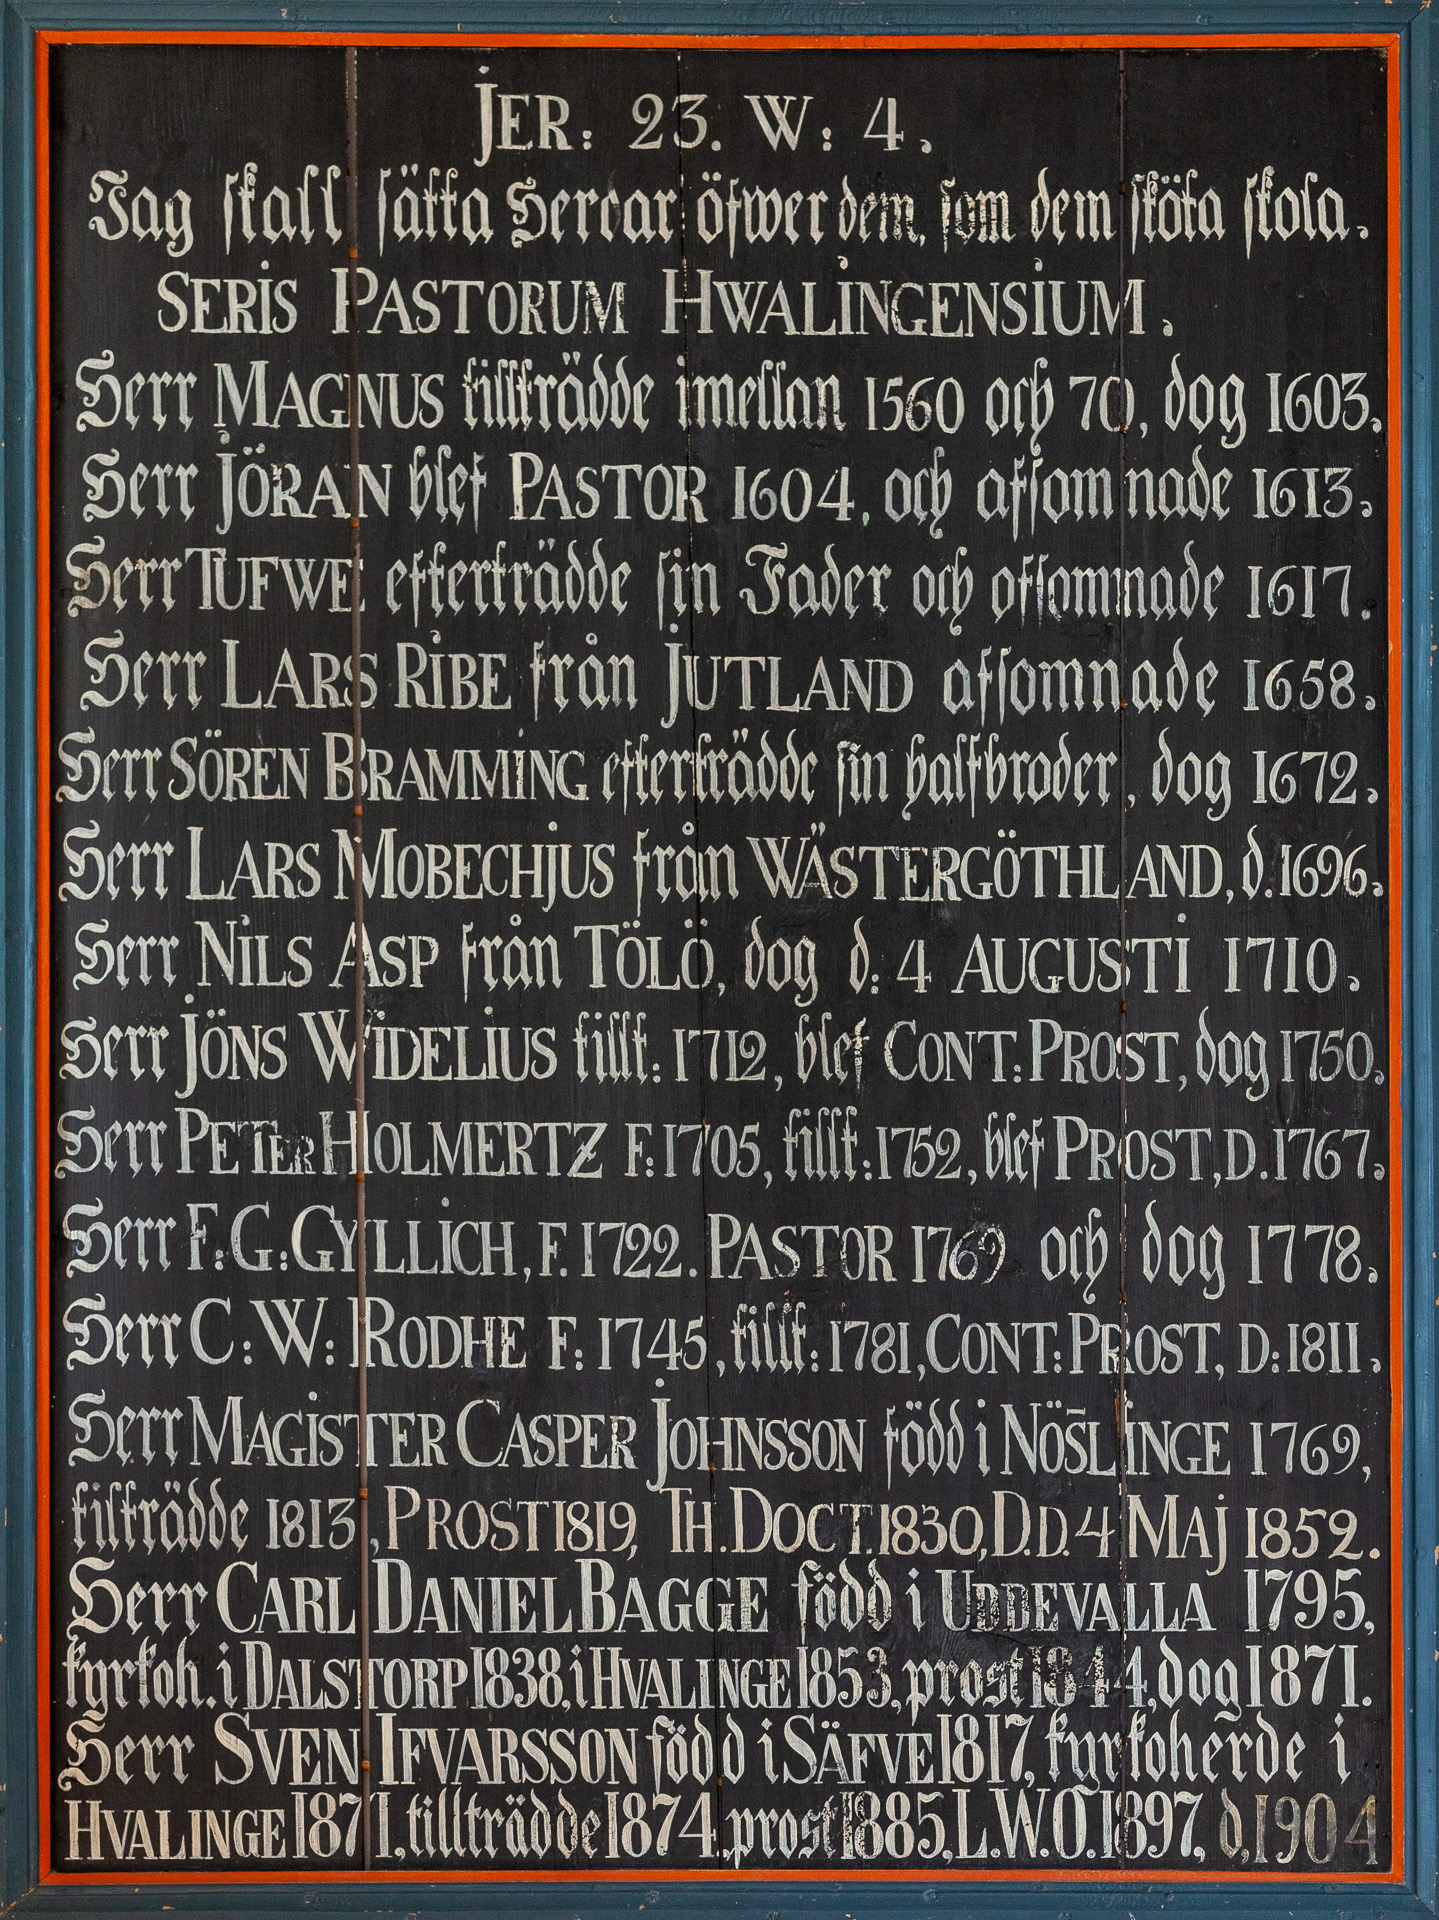 JER: 23. W: 4.
Jag skall sätta Herdar öfwer dem, som dem sköta skola.
SERIS PASTORUM HWALINGENSIUM.
Herr MAGNUS tillträdde imellan 1560 och 70, dog 1603.
Herr JÖRAN blef PASTOR 1604, och afsomnade 1613.
Herr TUFWE efterträdde sin Fader och afsomnade 1617.
Herr LARS RIBE från JUTLAND afsomnade 1658.
Herr SÖREN BRAMMING efterträdde sin halfbroder, dog 1672.
Herr LARS MOBECHJUS från WÄSTERGÖTHLAND, d. 1696.
Herr NILS ASP från TÖLÖ, dog d: 4 AUGUSTI 1710.
Herr JÖNS WIDELIUS tillt: 1712, blef CONT: PROST, dog 1750.
Herr PETER HOLMERTZ F: 1705, tillt: 1752, blef PROST, D. 1767.
Herr F: G: GYLLICH, F. 1722. PASTOR 1769 och dog 1778.
Herr C: W: RODHE F: 1745, tillt: 1781, CONT: PROST, D: 1811.
Herr MAGISTER CASPER JOHNSSON född i NÖSLINGE 1769,
tillträdde 1813, PROST 1819, TH. DOCT. 1830, D.D. 4 MAJ 1852.
Herr CARL DANIEL BAGGE född i UDDEVALLA 1795,
kyrkoh. i DALSTORP 1838, i HVALINGE 1853, prost 1844, dog 1871.
Herr SVEN IFVARSSON född i SÄFVE 1817, kyrkoherde i
HVALINGE 1871, tillträdde 1874, prost 1885, L.W.O. 1897, d. 1904